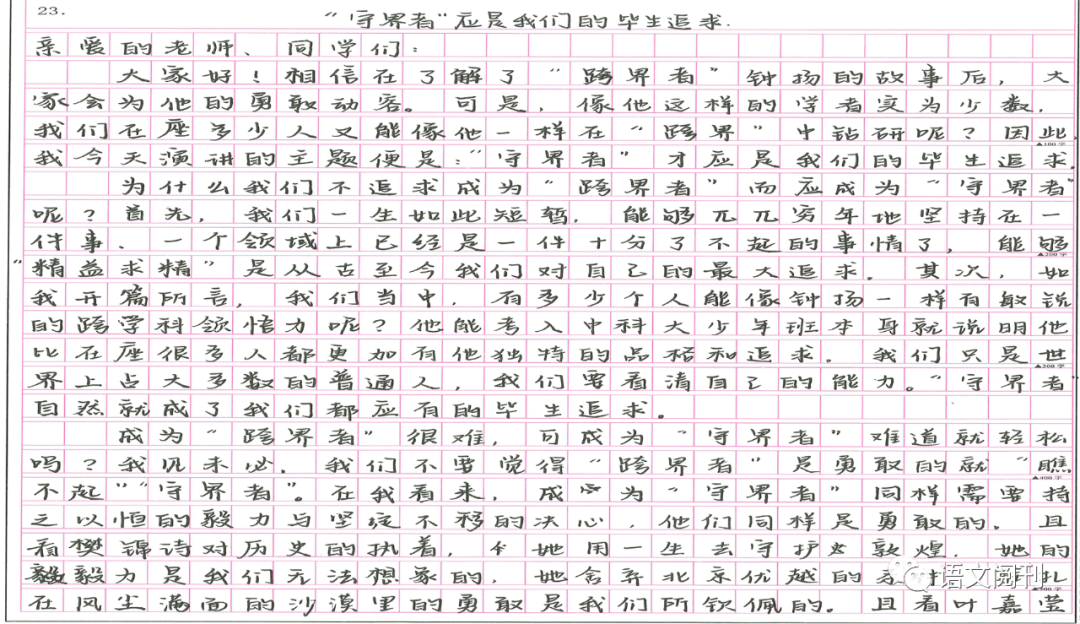 23.
“守界者”应是我们的毕生追求.
亲爱的老师、同学们：
大家好！相信在了解了“跨界者”钟扬的故事后，大
家会为他的勇敢动容。可是，像他这样的学者实为少数，
我们在座多少人又能像他一样在“跨界”中钻研呢？因此，
▲100字
我今天演讲的主题便是：“守界者”才应是我们的毕生追求.
为什么我们不追求成为“跨界者”而应成为“守界者”
呢？首先，我们一生如此短暂，能够兀兀穷年地坚持在一
件事、一个领域上已经是一件十分了不起的事情了，能够
▲200字
“精益求精”是从古至今我们对自己的最大追求。其次，如
我开篇所言，我们当中，有多少个人能像钟扬一样有敏锐
的跨学科领悟力呢？他能考入中科大少年班本身就说明他
比在座很多人都更加有他独特的品格和追求。我们只是世
▲300字
界上占大多数的普通人，我们要看清自己的能力。“守界者”
自然就成了我们都应有的毕生追求。
成为“跨界者”很难，可成为“守界者”难道就轻松
吗？我见未必。我们不要觉得“跨界者”是勇敢的就“瞧
▲400字
不起”“守界者”。在我看来，成为“守界者”同样需要持
之以恒的毅力与坚定不移的决心，他们同样是勇敢的。且
看樊锦诗对历史的执着，她用一生去守护敦煌，她的
毅力是我们无法想象的，她舍弃北京优越的 扎
语文阅刊
在风尘满面的沙漠里的勇敢是我们所钦佩的。且看叶嘉莹